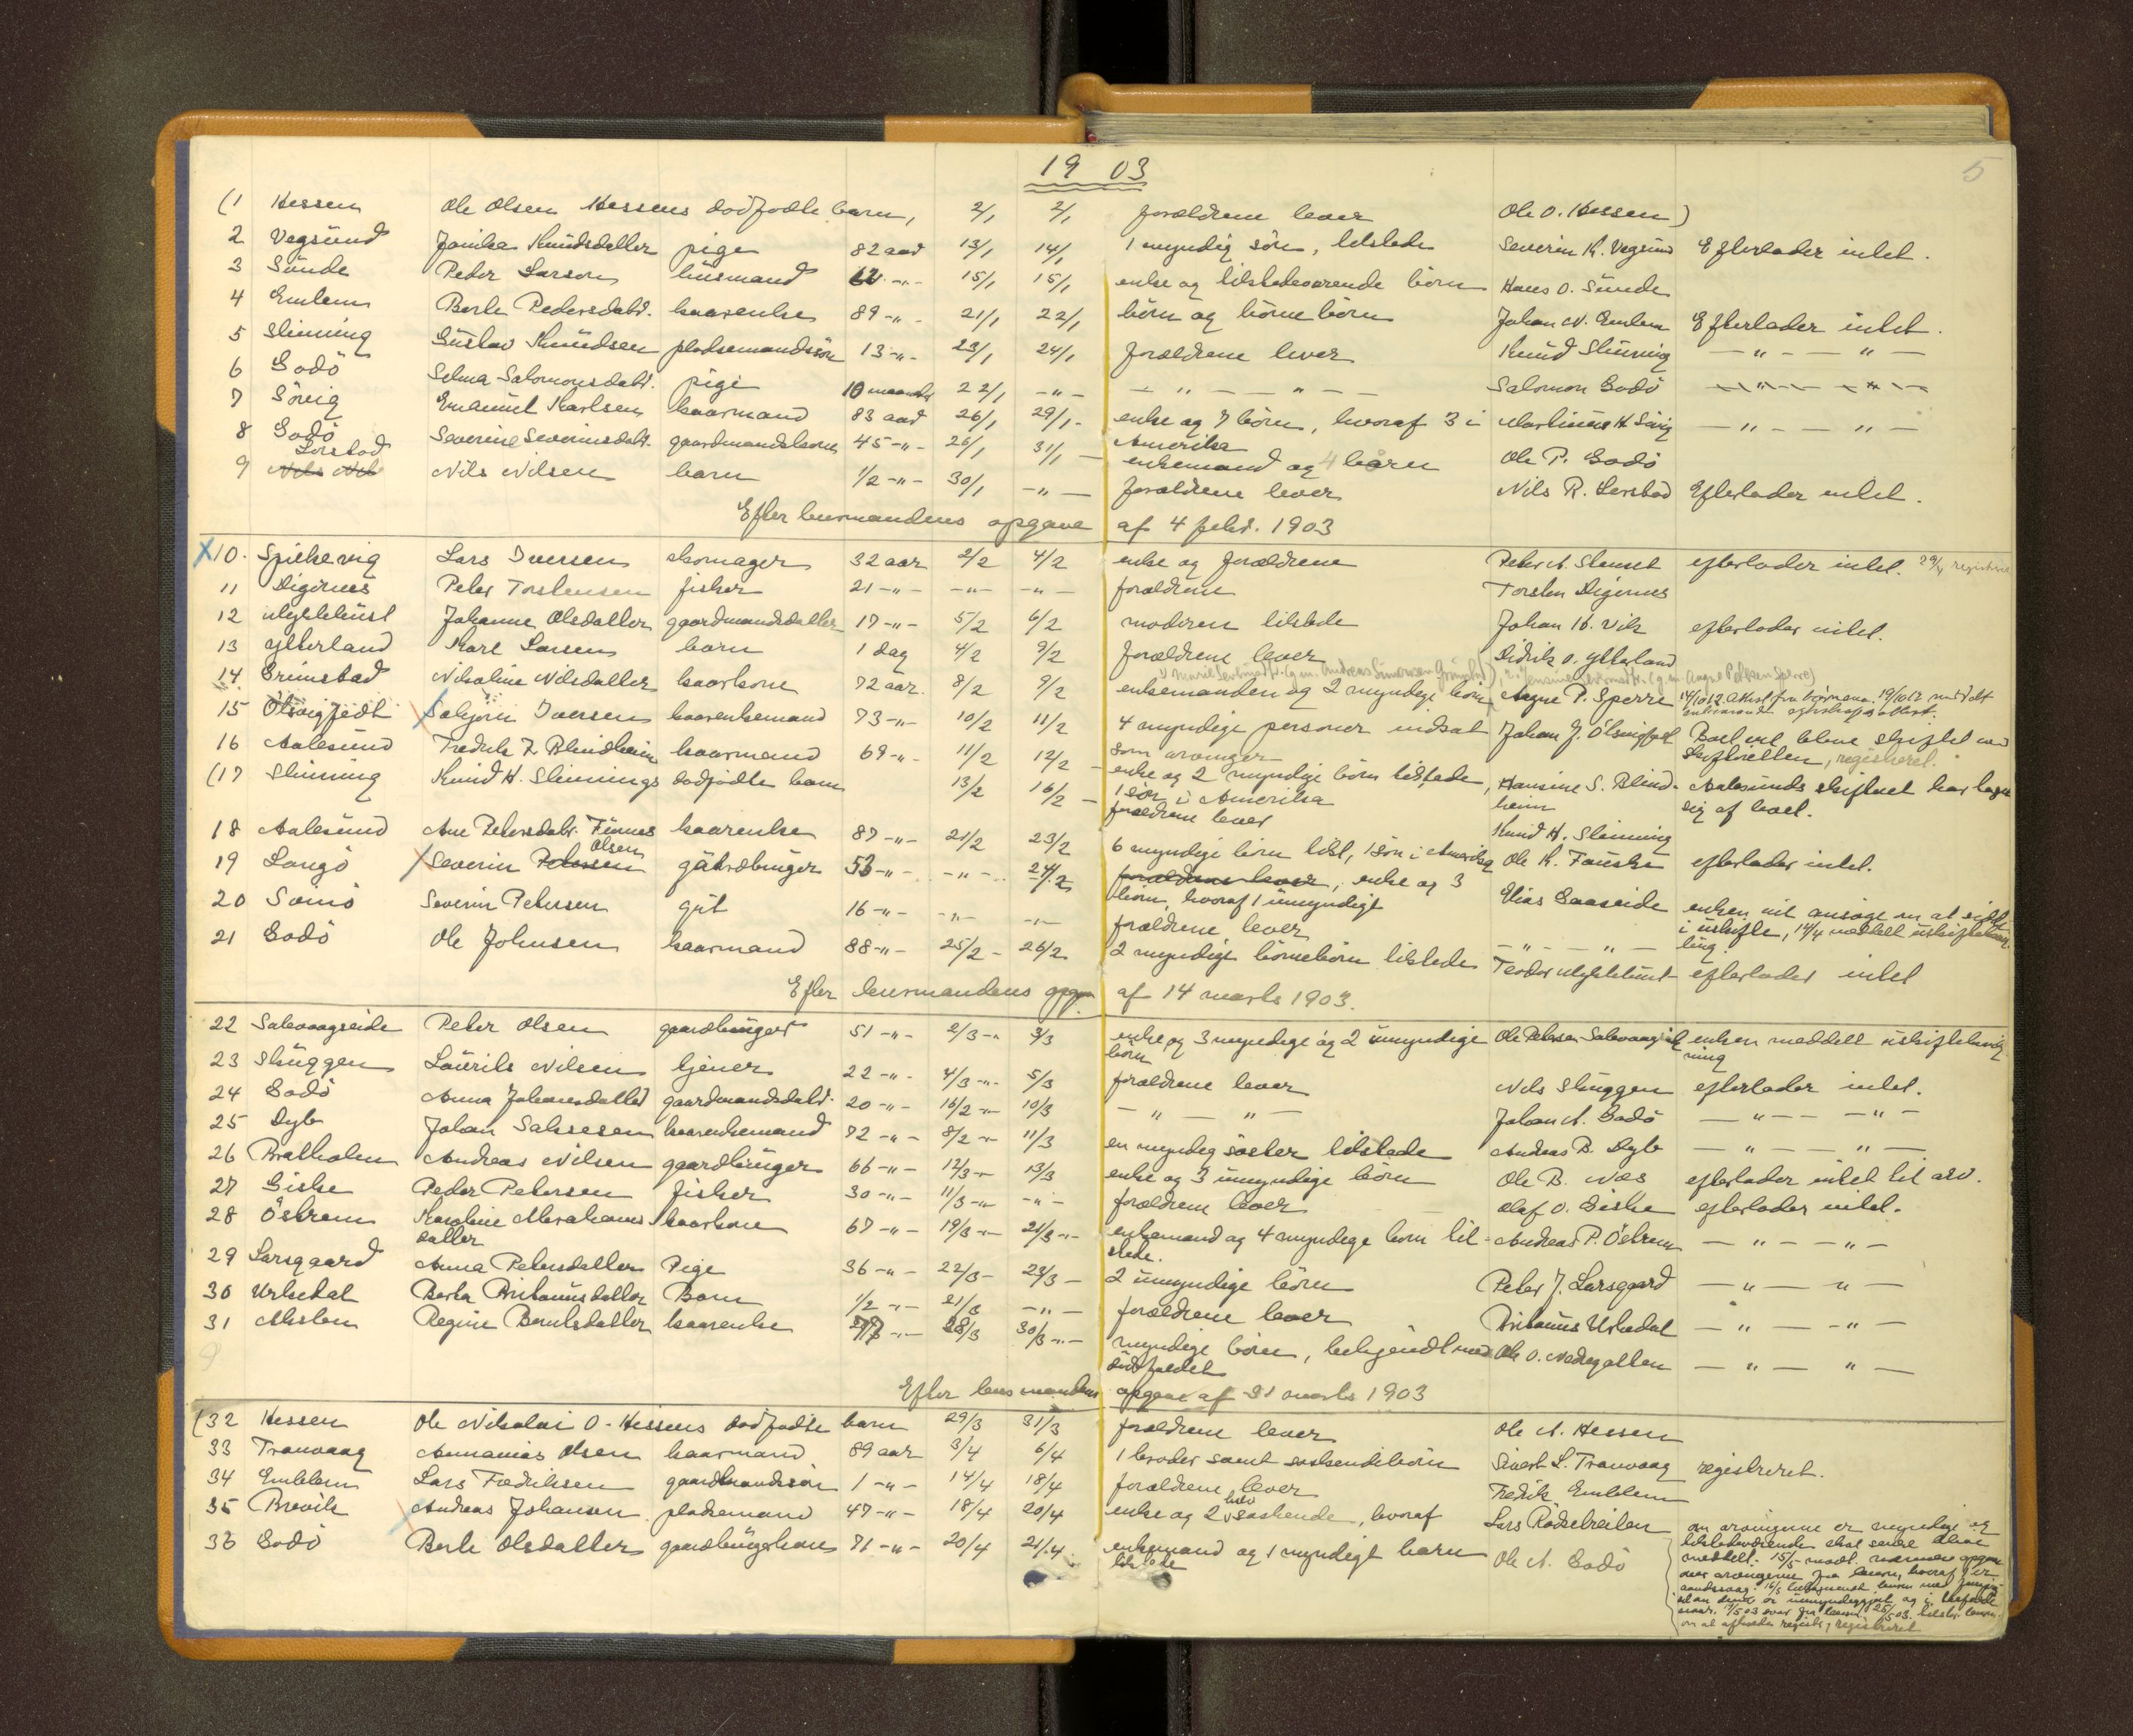 19 03
5
(1 Hessen Ole Olsen Hessens dødfødte barn, 2/1 2/1 forældrene lever Ole O. Hessen)
2 Vegsund Jonika Knudsdatter pige 82 aar 13/1 14/1 1 myndig søn, tilstede Severin K. Vegsund Efterlader intet.
3 Sunde Peder Larsen husmand 62 -"- 15/1 15/1 enke og tilstedeværende børn Hans O. Sunde
4 Emlem Berte Pedersdatr. kaarenke 89 -"- 21/1 22/1 børn og børnebørn Johan N. Emlem Efterlader intet.
5 Slinning Gustav Knudsen pladsemandssøn 13 -"- 23/1 24/1 forældrene lever Knud Slinning — " — — " —
6 Godø Selma Salomonsdatr. pige 10 maaneder 22/1 -"- — " — — " — Salomon Godø — " — — " —
7 Sørvig Emanuel Karlsen kaarmand 83 aar 26/1 29/1 - enke og 7 børn, hvoraf 3 i Martinus H Sørvig — " — — " —
Amerika
8 Godø Severine Severinsdatr. gaardmandskone 45 -"- 26/1 31/1 — enkemand og 4 børn Ole P. Godø
Lorstad
9 Nils Nils Nils Nilsen barn 1/2 -"- 30/1 -"- forældrene lever Nils R. Lorstad Efterlader intet.
Efter lensmandens opgave af 4 febr. 1903
X10. Spjelkevig Lars Iversen skomager 32 aar 2/2 4/2 enke og forældrene Peter A. Slemset efterlader intet. 29/4 registreret
11 Digernes Peter Torstensen fisker 21 -"- -"- -"- forældrene Torsten Digernes
12 Myklebust Johanne Olsdatter gaardmandsdatter 17 -"- 5/2 6/2 moderen tilstede Johan K. Vik efterlader intet.
13 Ytterland Karl Larsen barn 1 dag 4/2 9/2 forældrene lever Didrik O. Ytterland
14 Grimstad Nikoline Nilsdatter kaarkone 72 aar. 8/2 9/2 enkemanden og 2 myndige børn, Aagne P. Sperre
15 Ølsvigfjedt Sakjorn Iversen kaarenkemand 73 -"- 10/2 11/2 4 myndige personer indsat Johan J. Ølsvigfjedt Boet vil blive skiftet ved
som arvinger skifteretten, registreret.
16 Aalesund Fredrik J. Blindheim kaarmand 69 -"- 11/2 12/2 - enke og 2 myndige børn tilstede, Hansine S. Blind- Aalesunds skifteret har taget
1 søn i Amerika heim sig af boet.
(17 Slinning Knud H. Slinnings dødfødte barn 13/2 16/2 — forældrene lever Knud H. Slinning
18 Aalesund Ane Petersdatr. Finnes kaarenke 87 -"- 21/2 23/2 6 myndige børn tilst, 1 søn i Amerika Ole K. Fauske efterlader intet.
Olsen
19 Langø Severin Petersen gårdbruger 53 -"- -"- 24/2 forældrene lever, enke og 3 Elias Gaaseide enken vil ansøge om at sidde
børn, hvoraf 1 umyndigt i uskifte, 14/4 meddelt uskiftebevil-
ling.
20 Sunø Severin Petersen gut 16 -"- -"- -"- forældrene lever — " — — " —
21 Godø Ole Johnsen kaarmand 88 -"- 25/2 - 26/2 2 myndige børnebørn tilstede Teodor Myklebust efterlader intet
Efter lensmandens opgave af 14 marts 1903.
22 Salvaagseide Peter Olsen gaardbruger 51 -"- 2/3 -"- 3/3 enke og 3 myndige og 2 umyndige Ole Petersen Salvaagseide enken meddelt uskiftebevilg-
børn ning
23 Skuggen Laurits Nilsen tjener 22 -"- 4/3 -"- 5/3 forældrene lever Nils Skuggen efterlader intet.
24 Godø Anna Johansdatter gaardmandsdatr. 20 -"- 16/2 -"- 10/3 — " — " — Johan A. Godø — " — — " —
25 Dyb Johan Saksesen kaarenkemand 72 -"- 8/2 -"- 11/3 en myndig søster tilstede Andreas B. Dyb — " — — " —
26 Bratholm Andreas Nilsen gaardbruger 66 -"- 12/3 -"- 13/3 enke og 3 umyndige børn Ole B. Næs efterlader intet til arv.
27 Giske Peder Petersen fisker 30 -"- 11/3 -"- -"- forældrene lever Olaf O. Giske efterlader intet.
28 Østrem Karoline Abrahams kaarkone 67 -"- 19/3 -"- 21/3 -"- enkemand og 4 myndige børn til- Andreas P. Østrem — " — — " —
datter stede.
29 Larsgaard Anna Petersdatter Pige 36 -"- 22/3 - 23/3 - 2 umyndige børn Peter J. Larsgaard — " — " —
30 Urkedal Berta Britanusdatter Barn 1/2 -"- 21/3 -"- forældrene lever Britanus Urkedal — " — — " —
31 Alnes Regine Berntsdatter kaarenke 77 -"- 28/3 30/3 -"- myndige børn, bekjendt med Ole O. Nedregotten — " — " —
dødsfaldet
Efter lensmandens opgave af 31 marts 1903
(32 Hessen Ole Nikolai O. Hessens dødfødte barn 29/3 31/3 forældrene lever Ole N. Hessen
33 Tranvaag Annanias Olsen kaarmand 89 aar 3/4 6/4 1 broder samt søskendebørn Sivert L. Tranvaag registreret.
34 Emblem Lars Fredriksen gaardmandssøn 1 -"- 14/4 18/4 forældrene lever Fredrik Emblem
35 Brevik Andreas Johansen pladsemand 47 -"- 18/4 20/4 enke og 2 halvsøskende, hvoraf Lars Rødsetreiten om arvingerne er myndige og
tilstedeværende skal senere blive
meddelt.
36 Godø Berte Olsdatter gaardbrugerkone 71 -"- 20/4 21/4 enkemand og 1 myndigt barn Ole A. Godø
tilstede